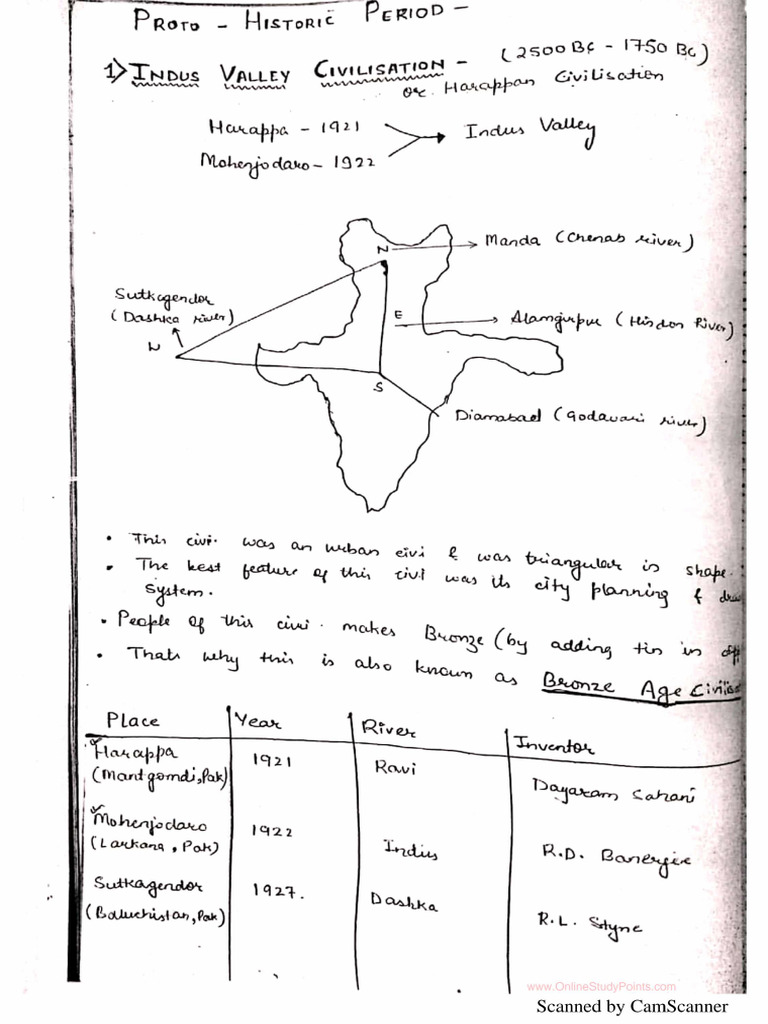 PROTO - HISTORIC PERIOD -
1) INDUS VALLEY CIVILISATION - (2500 BC - 1750 BC)
or Harappan Civilisation
Harappa - 1921
Indus Valley
Mohenjodaro - 1922
N
Manda (Chenab river)
Sutkagendor
(Dashka river)
E
Alamgirpur (Hisdon River)
W
S
Diamabad (Godavari river)
• This civi. was an urban civi & was triangular in shape.
• The best feature of this civi was its city planning &
system.
• People of this civi. makes Bronze (by adding tin in
• Thats why this is also known as Bronze Age
Place Year River Inventor
Harappa 1921 Ravi Dayaram Sahani
(Mantgomdi, Pak)
Mohenjodaro 1922 Indus R.D. Banerjee
(Larkana, Pak)
Sutkagendor 1927. Dashka R.L. Styne
(Baluchistan, Pak)
www.OnlineStudyPoints.com
Scanned by CamScanner